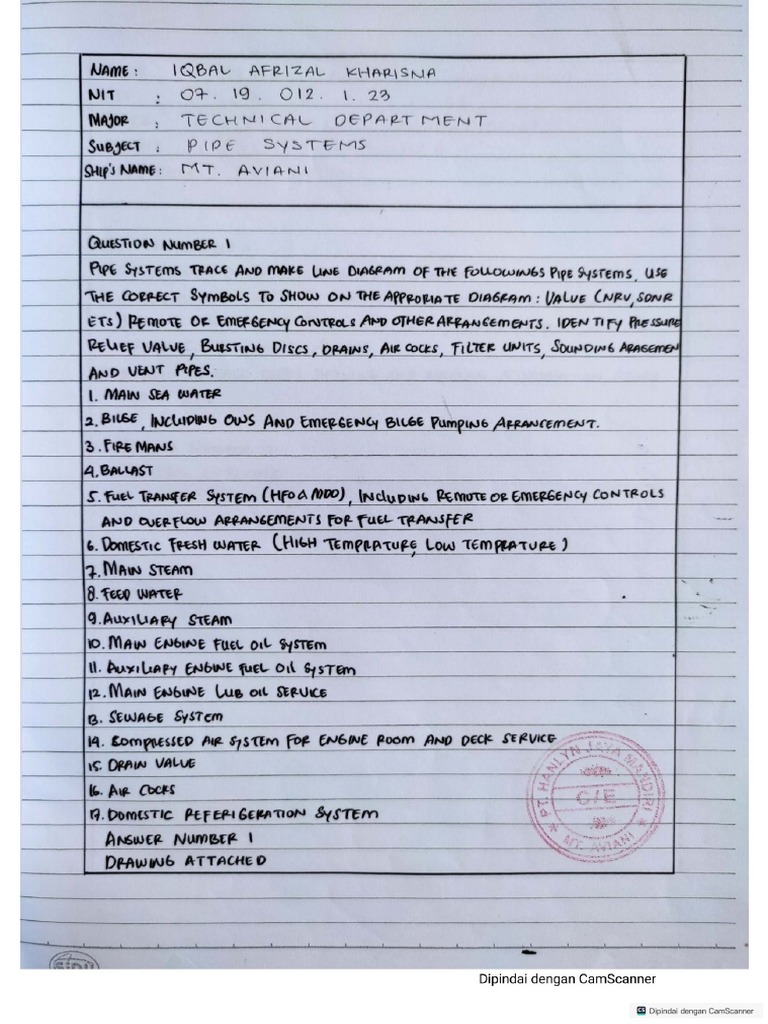 NAME : IQBAL AFRIZAL KHARISNA
NIT : 07. 19. 012. 1. 23
MAJOR : TECHNICAL DEPARTMENT
SUBJECT : PIPE SYSTEMS
SHIP'S NAME : MT. AVIANI
QUESTION NUMBER 1
PIPE SYSTEMS TRACE AND MAKE LINE DIAGRAM OF THE FOLLOWINGS PIPE SYSTEMS. USE
THE CORRECT SYMBOLS TO SHOW ON THE APPRORIATE DIAGRAM : VALUE (NRV, SDNR
ETS) REMOTE OR EMERGENCY CONTROLS AND OTHER ARRANGEMENTS. IDENTIFY PRESSURE
RELIEF VALUE, BURSTING DISCS, DRAINS, AIR COCKS, FILTER UNITS, SOUNDING ARAGEMEN
AND VENT PIPES.
1. MAIN SEA WATER
2. BILGE, INCLUDING OWS AND EMERGENCY BILGE PUMPING ARRANCEMENT.
3. FIRE MANS
4. BALLAST
5. FUEL TRANSFER SYSTEM (HFO & MDO), INCLUDING REMOTE OR EMERGENCY CONTROLS
AND OVERFLOW ARRANGEMENTS FOR FUEL TRANSFER
6. DOMESTIC FRESH WATER (HIGH TEMPRATURE, LOW TEMPRATURE)
7. MAIN STEAM
8. FEED WATER
9. AUXILIARY STEAM
10. MAIN ENGINE FUEL OIL SYSTEM
11. AUXILIARY ENGINE FUEL OIL SYSTEM
12. MAIN ENGINE LUB OIL SERVICE
13. SEWAGE SYSTEM
14. COMPRESSED AIR SYSTEM FOR ENGINE ROOM AND DECK SERVICE
15. DRAIN VALUE
16. AIR COCKS
17. DOMESTIC REFERIGERATION SYSTEM
ANSWER NUMBER 1
DRAWING ATTACHED
PT. HANLYN JAYA MANDIRI
C/E
MT. AVIANI
SIDU
Dipindai dengan CamScanner
CS Dipindai dengan CamScanner